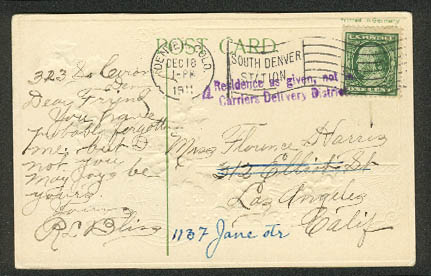 Printed in Germany
POST CARD.
DENVER, COLO.
DEC 18
1-PM
1911
SOUTH DENVER
STATION
Residence as given, not in
4 Carriers Delivery District
323 So
Dear Friend
You have
probably forgotten
me, but I
not you
May joys be
yours.
Yours
Miss Florence Harris
312 Elliott St
Los Angeles
Calif
1137 Jane str